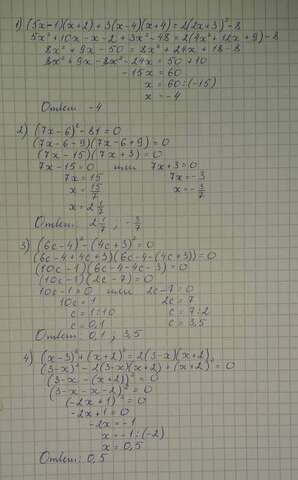 1) (5x-1)(x+2)+3(x-4)(x+4)=2(2x+3)²-8
5x²+10x-x-2+3x²-48=2(4x²+12x+9)-8
8x²+9x-50=8x²+24x+18-8
8x²+9x-8x²-24x=50+10
-15x=60
x=60:(-15)
x=-4
Ответ: -4
2) (7x-6)²-81=0
(7x-6-9)(7x-6+9)=0
(7x-15)(7x+3)=0
7x-15=0 или 7x+3=0
7x=15 7x=-3
x=15/7 x=-3/7
x=2 1/7
Ответ: 2 1/7 ; -3/7
3) (6c-4)²-(4c+3)²=0
(6c-4+4c+3)(6c-4-(4c+3))=0
(10c-1)(6c-4-4c-3)=0
(10c-1)(2c-7)=0
10c-1=0 или 2c-7=0
10c=1 2c=7
c=1:10 c=7:2
c=0,1 c=3,5
Ответ: 0,1 ; 3,5
4) (x-3)²+(x+2)²=2(3-x)(x+2)
(3-x)²-2(3-x)(x+2)+(x+2)²=0
(3-x-(x+2))²=0
(3-x-x-2)²=0
(-2x+1)²=0
-2x+1=0
-2x=-1
x=-1:(-2)
x=0,5
Ответ: 0,5